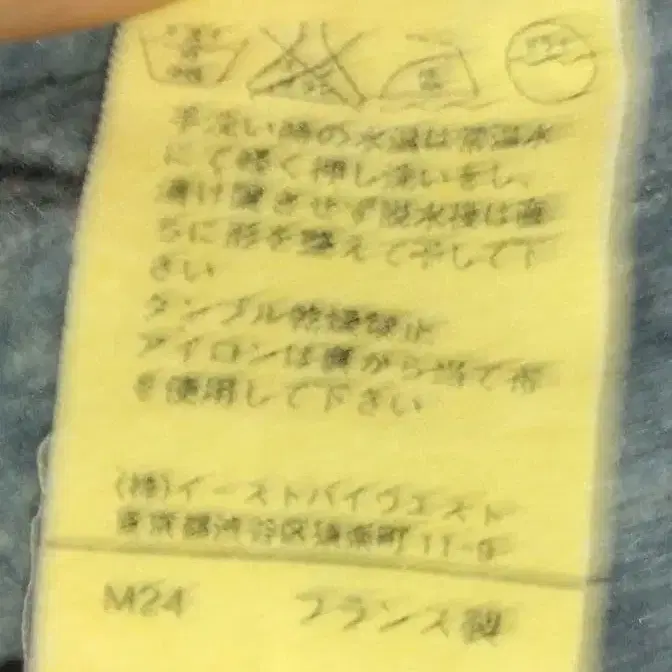 手洗い時の水温は常温水
にて軽く押し洗いをし、
漬け置きせず脱水後は直
ちに形を整えて干して下
さい
タンブル乾燥禁止
アイロンは裏から当て布
を使用して下さい
(株)イーストバイウエスト
東京都渋谷区猿楽町 11-6
M24 フランス製